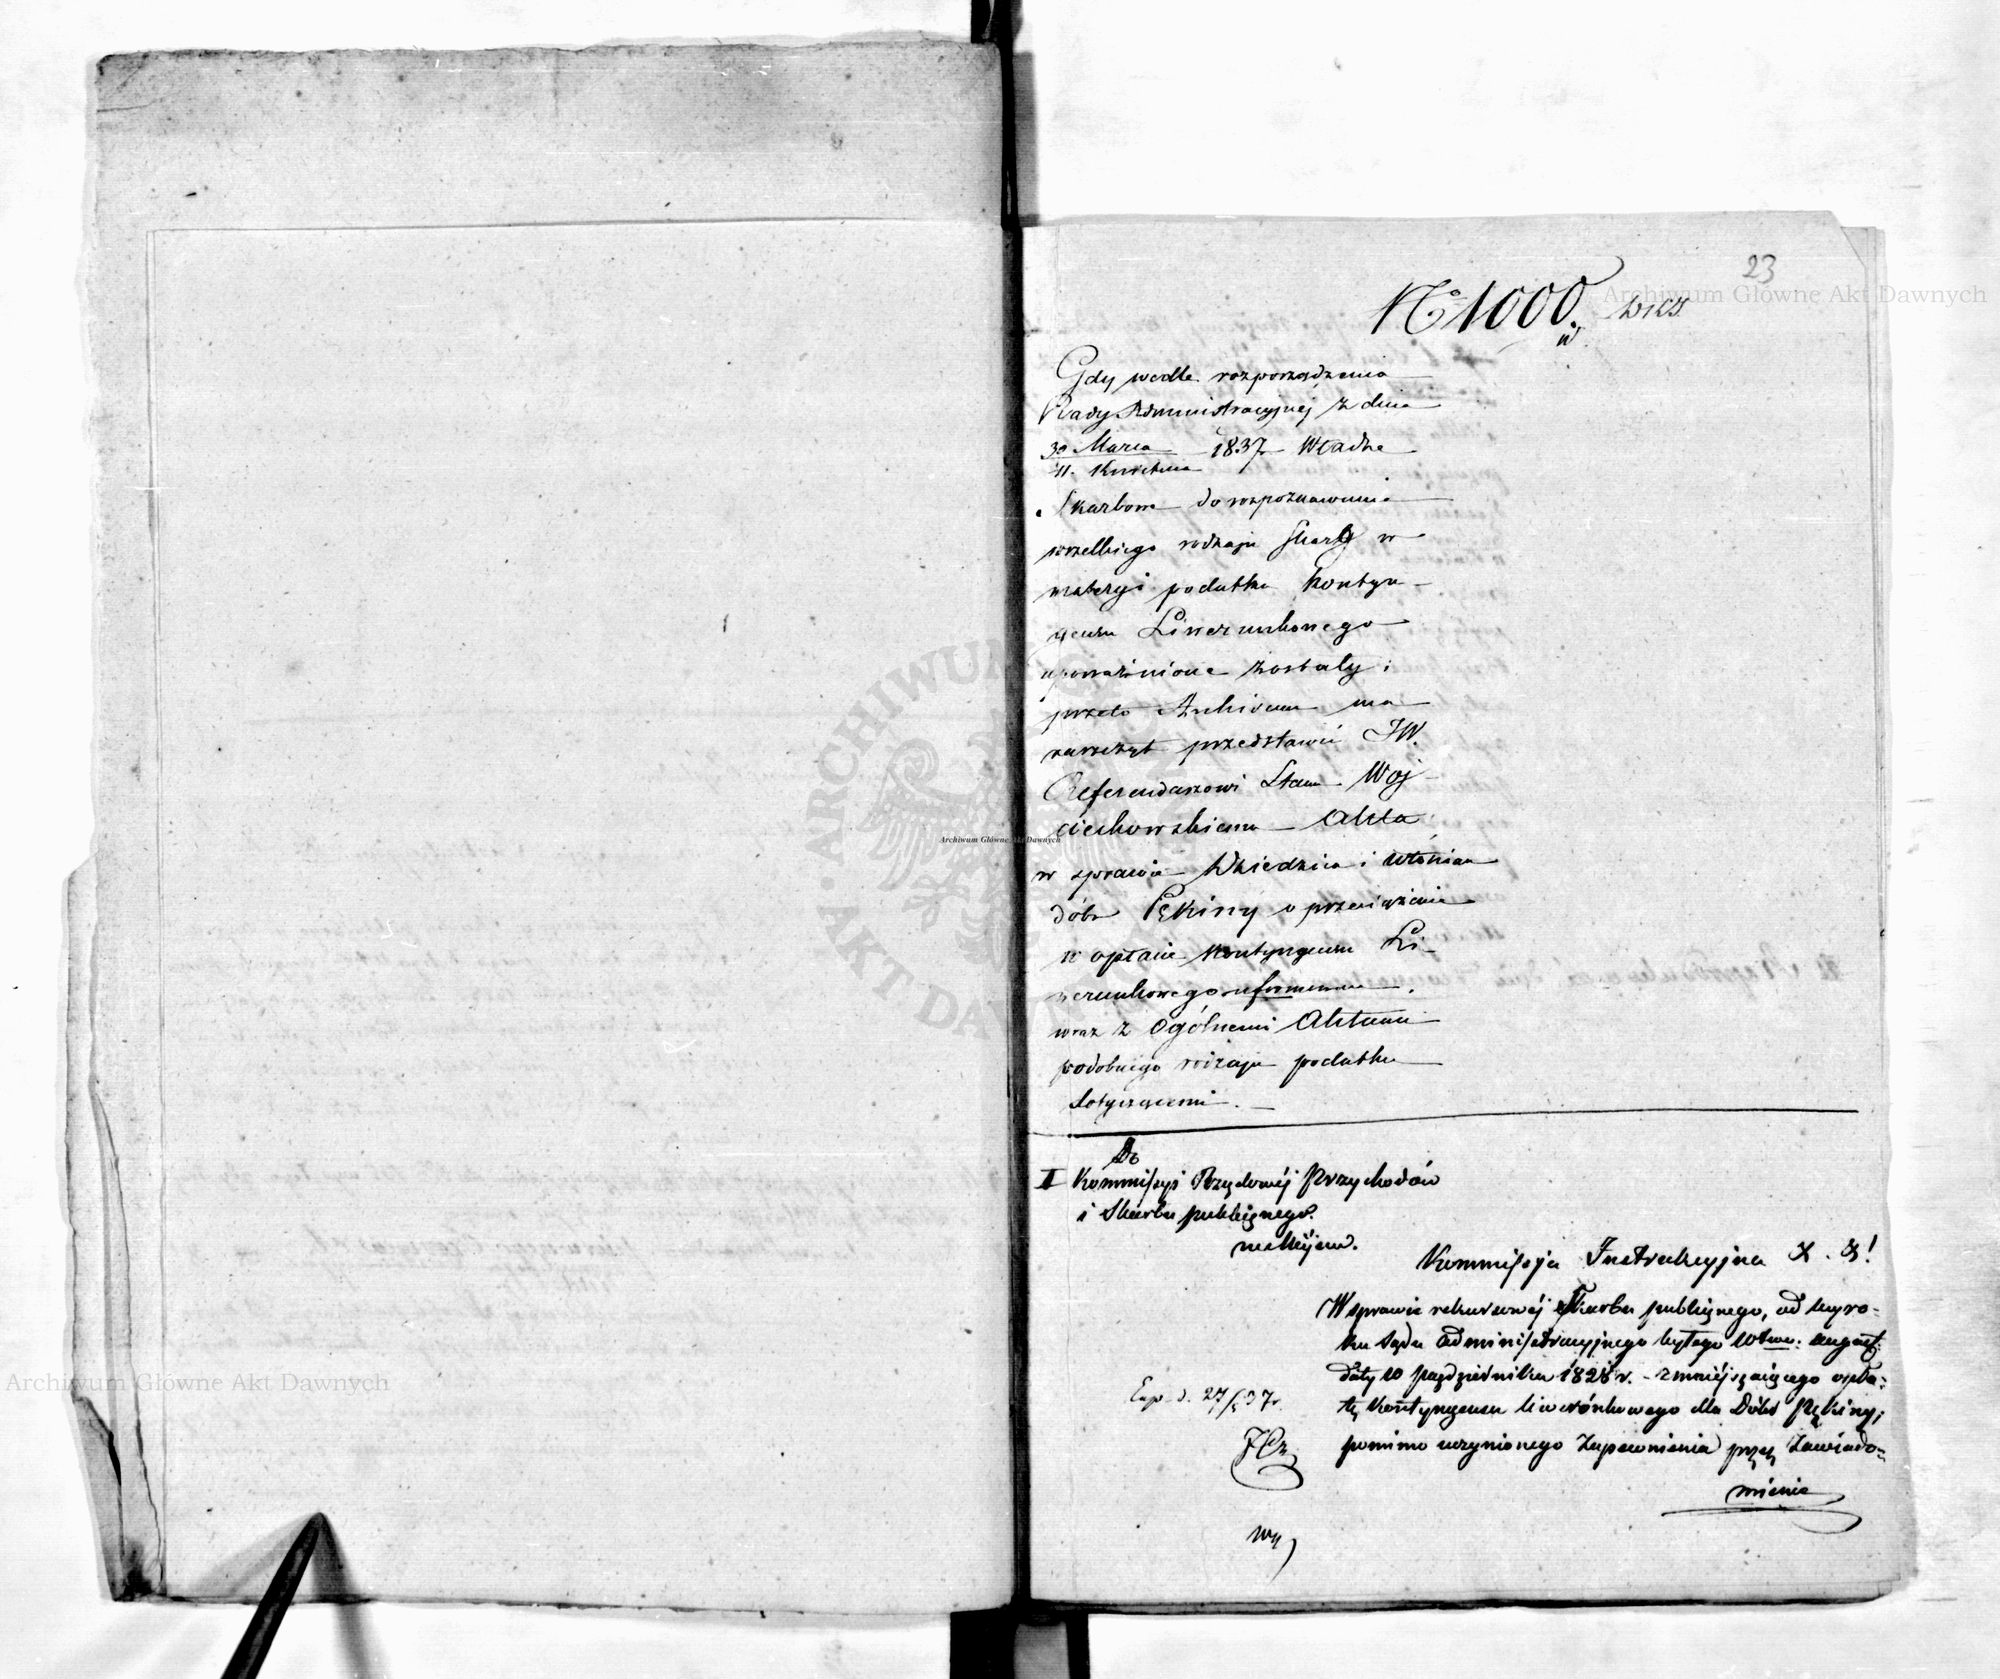 23
No 1000.
Gdy wedle rozporządzenia
Rady Administracyjnéj z dnia
30 Marca
11. Kwietnia
1837. Władze
Skarbowe do rozpoznawania
wszelkiego rodzaju skarg w
materyi podatku Kontyn-
gensu Liwerunkowego
upoważnione zostały;
przeto Archivum ma
zaszczyt przedstawić JW.
Referendarzowi Stanu Woj-
ciechowskiemu Akta
w sprawie Dziedzica i Włościan
dóbr Pękiny o przeciążenie
w opłacie Kontyngensu Li-
werunkowego uformowane,
wraz z Ogólnemi Aktami
podobnego rodzaju podatku
dotyczącemi.
Do
I Kommissyi Rządowéj Przychodów
i Skarbu publicznego.
w miéjscu.
Kommissja Instrukcyjna X. X!
W sprawie rekursowéj Skarbu publicznego, od wyro-
ku Sądu administracyjnego byłego Wtwa. august:
daty 10 października 1828 r. zmniéjszaiącego opła-
tę kontyngensu liwerónkowego dla Dóbr Pękiny;
pomimo uczynionego Zapewnienia przez Zawiado-
mienie
Exp. d. 27/5 37 r.